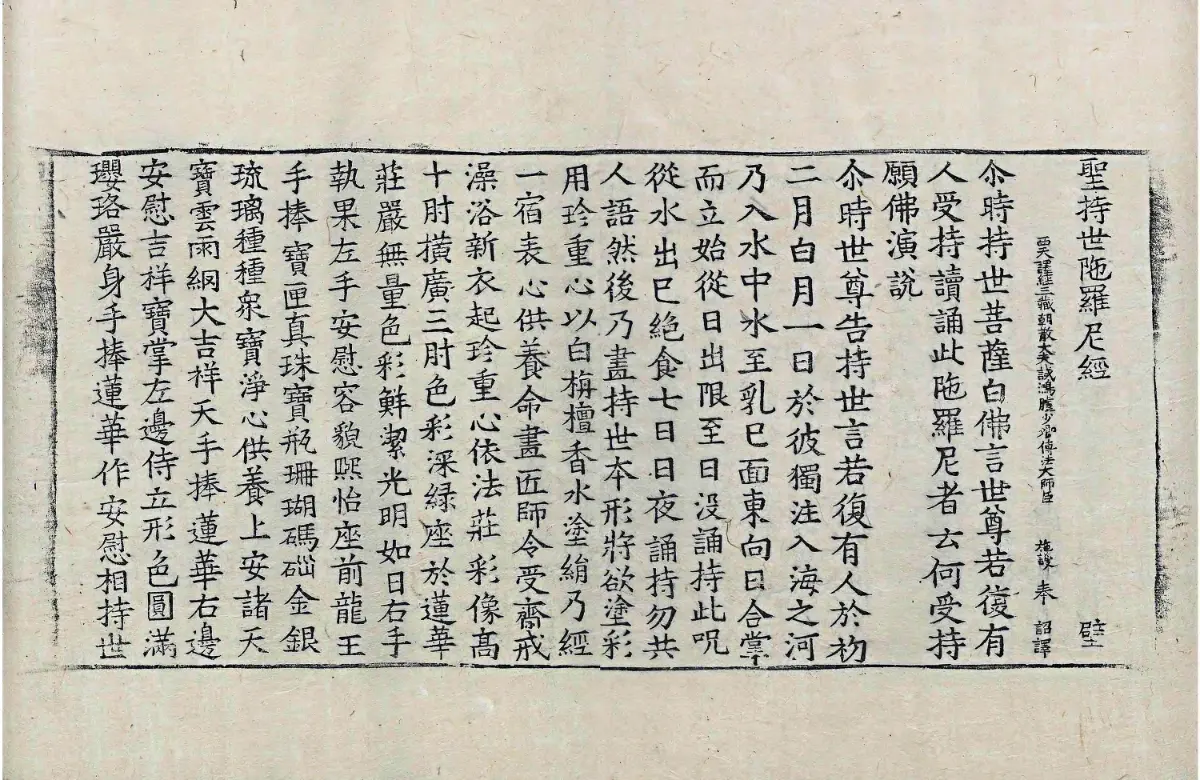 聖持世陁羅尼經 壁
西天譯經三藏朝散大夫試鴻臚少卿傳法大師臣 施護 奉 詔譯
尒時持世菩薩白佛言世尊若復有
人受持讀誦此陁羅尼者云何受持
願佛演說
尒時世尊告持世言若復有人於初
二月白月一日於彼獨注入海之河
乃入水中水至乳已面東向日合掌
而立始從日出限至日没誦持此呪
從水出已絶食七日日夜誦持勿共
人語然後乃畫持世本形將欲塗彩
用珍重心以白栴檀香水塗絹乃經
一宿表心供養命畫匠師令受齋戒
澡浴新衣起珍重心依法莊彩像高
十肘横廣三肘色彩深緑座於蓮華
莊嚴無量色彩鮮潔光明如日右手
執果左手安慰容貌熙怡座前龍王
手捧寶匣真珠寶瓶珊瑚碼碯金銀
琉璃種種衆寶淨心供養上安諸天
寶雲雨網大吉祥天手捧蓮華右邊
安慰吉祥寶掌左邊侍立形色圓滿
瓔珞嚴身手捧蓮華作安慰相持世